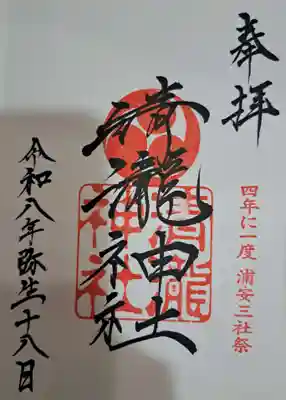 奉拝
四年に一度 浦安三社祭
清瀧神社
清瀧神社
令和八年弥生十八日